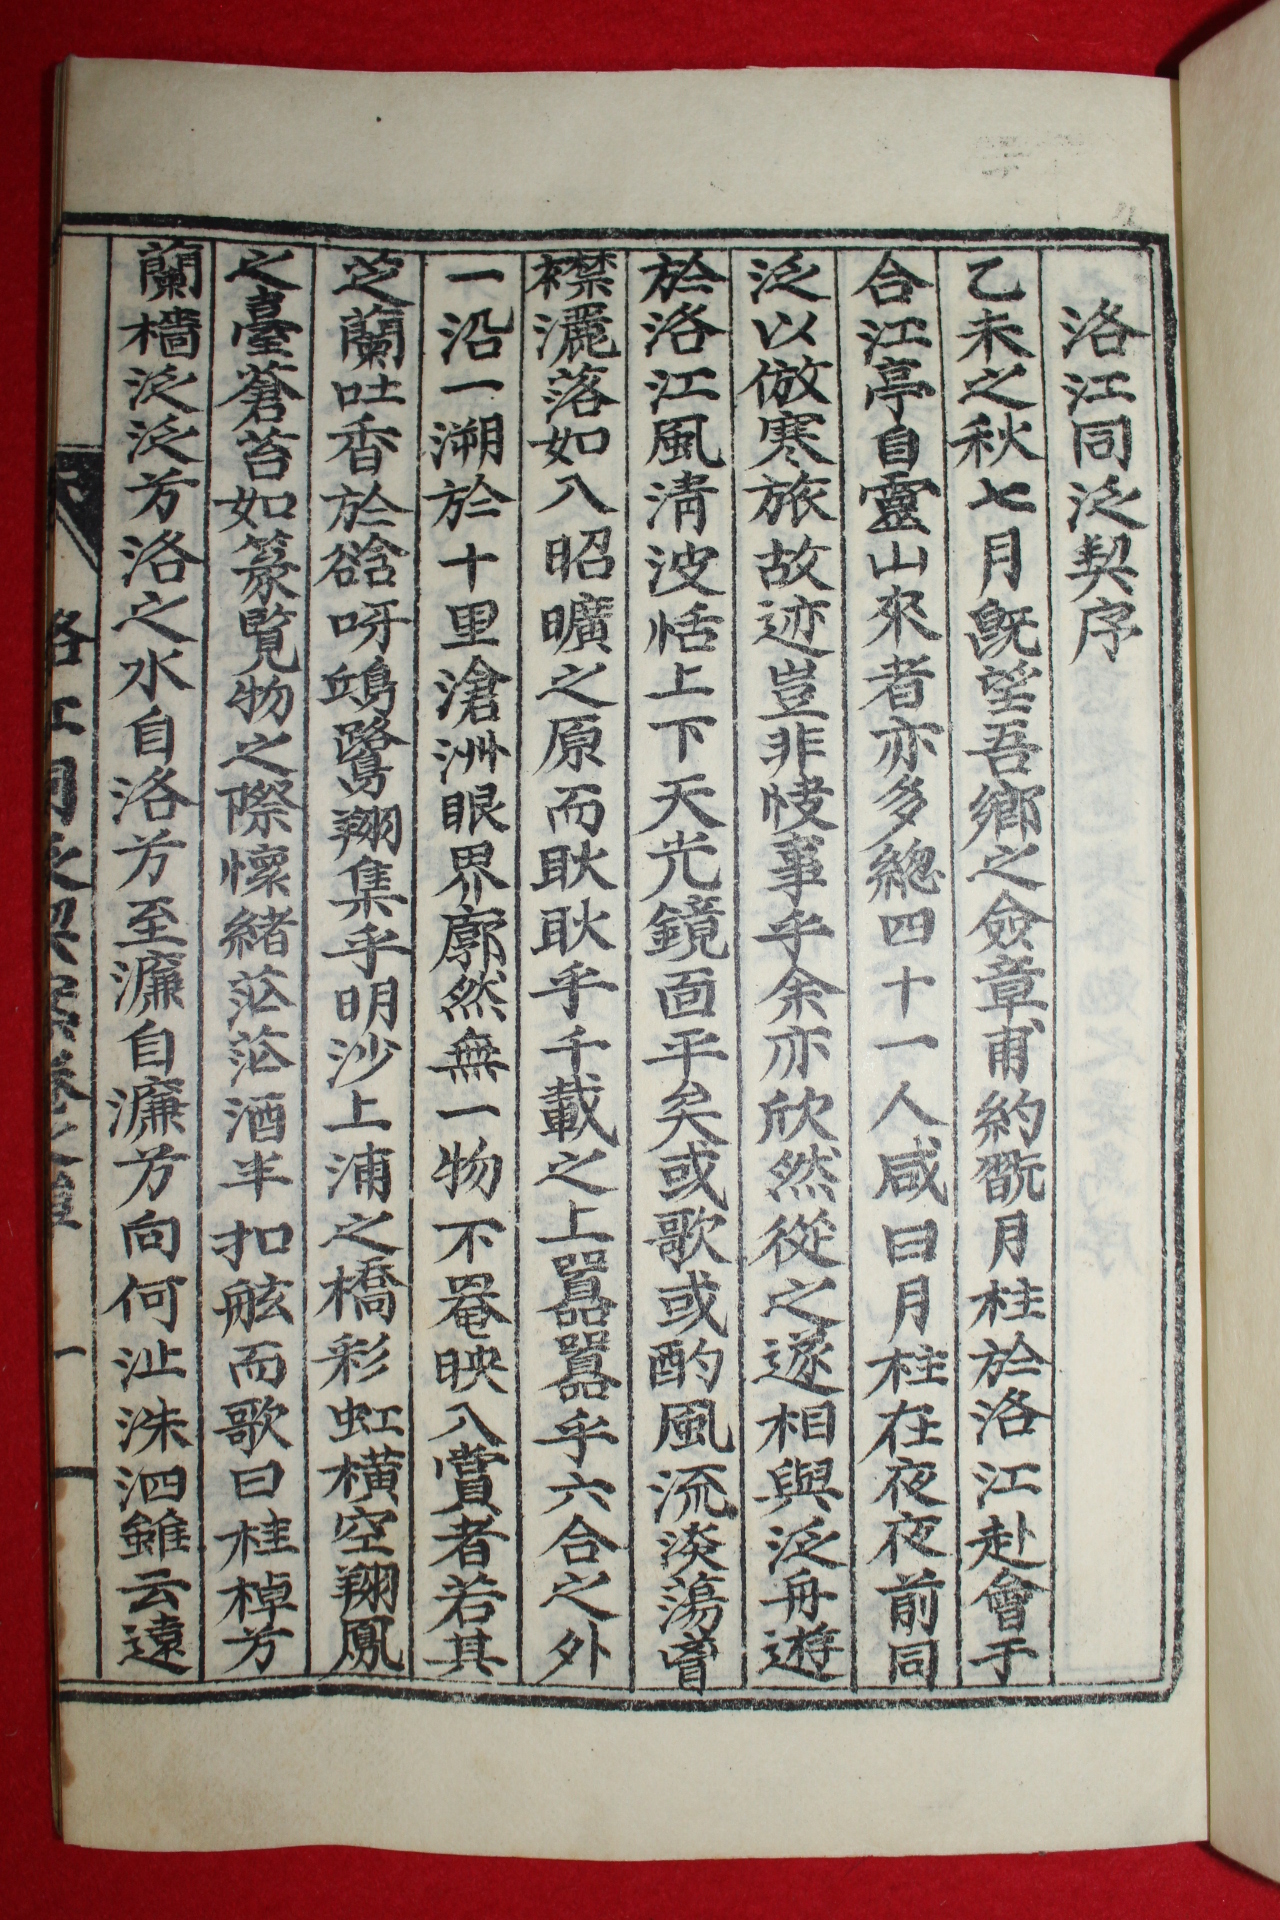 洛江同泛契序
乙未之秋七月旣望吾鄉之僉章甫約翫月柱於洛江赴會于
合江亭自靈山來者亦多總四十一人咸曰月柱在夜夜前同
泛以倣寒旅故迹豈非悽事乎余亦欣然從之遂相與泛舟遊
於洛江風淸波恬上下天光鏡面平矣或歌或酌風流淡蕩胷
襟灑落如入昭曠之原而耿耿乎千載之上囂囂乎六合之外
一沿一溯於十里滄洲眼界廓然無一物不罨映入賞者若其
芝蘭吐香於谽呀鴆鷺翔集乎明沙上浦之橋彩虹橫空翔鳳
之臺蒼苔如篆覽物之際懷緖茫茫酒半扣舷而歌曰桂棹兮
蘭檣泛泛兮洛之水自洛兮至濂自濂兮向何沚洙泗雖云遠
洛江同泛契案卷之壹
一